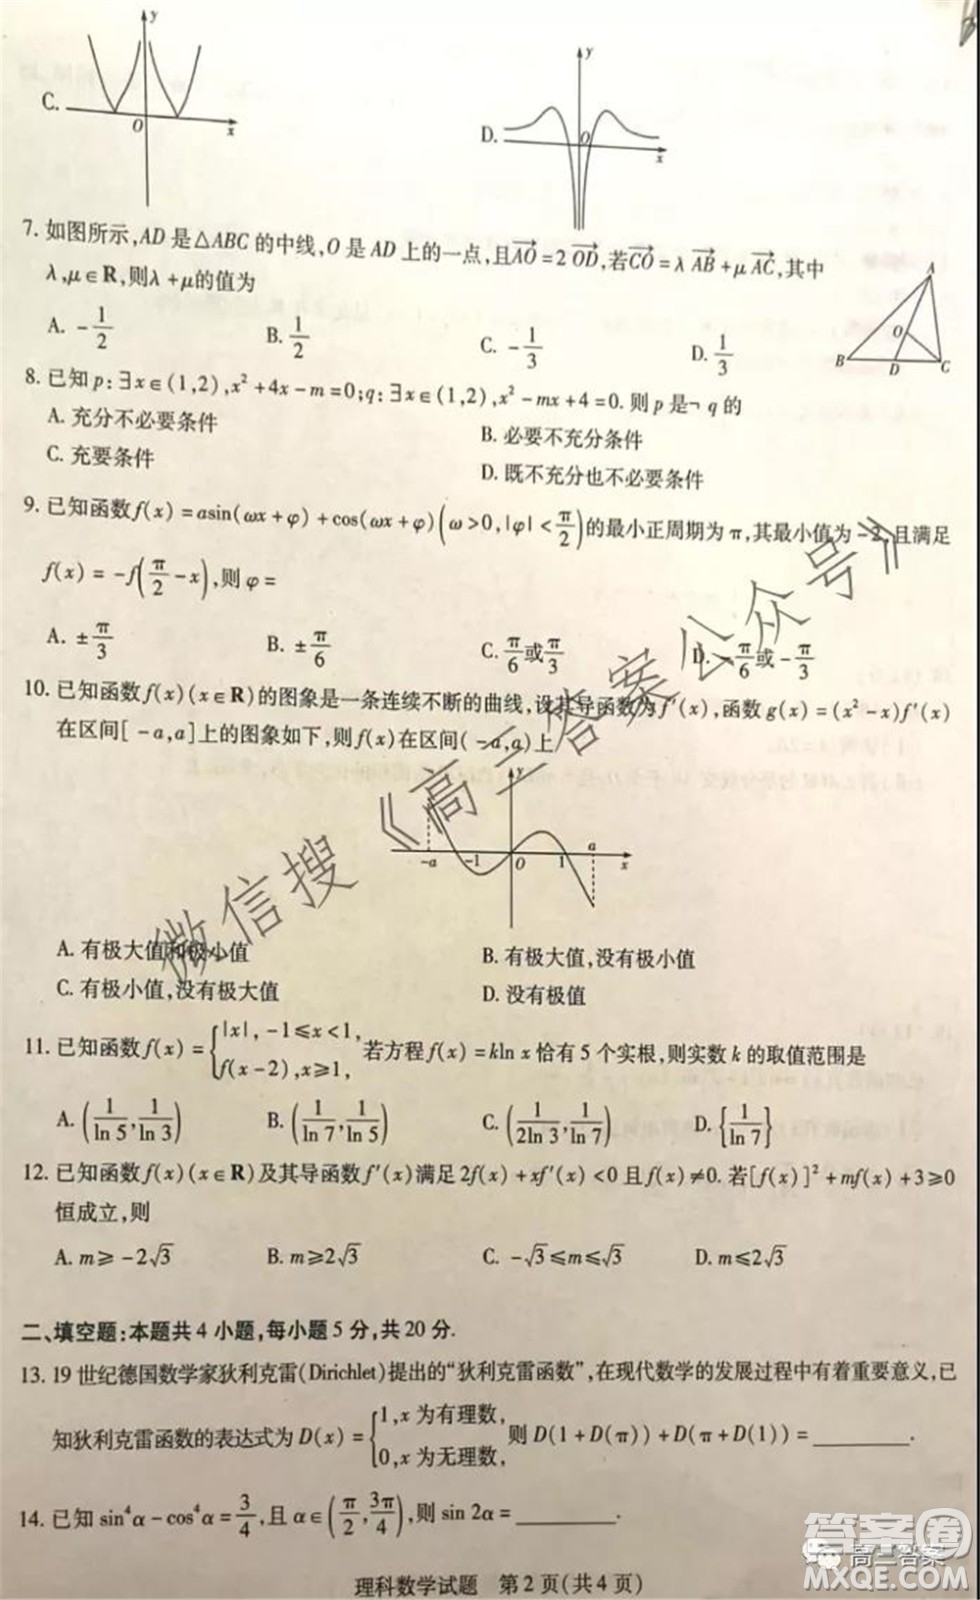 C.
y
O
x
D.
y
O
x
7. 如图所示,AD 是△ABC 的中线,O 是 AD 上的一点,且AO⃗=2 OD⃗,若CO⃗=λ AB⃗+μ AC⃗,其中
λ,μ∈R,则λ+μ的值为
A. -1/2
B. 1/2
C. -1/3
D. 1/3
A
O
B
D
C
8. 已知 p:∃x∈(1,2),x²+4x-m=0;q:∃x∈(1,2),x²-mx+4=0. 则 p 是¬ q 的
A. 充分不必要条件
B. 必要不充分条件
C. 充要条件
D. 既不充分也不必要条件
9. 已知函数f(x)=asin(ωx+φ)+cos(ωx+φ)(ω>0,|φ|<π/2)的最小正周期为 π,其最小值为-2,且满足
f(x)=-f(π/2-x),则 φ=
A. ±π/3
B. ±π/6
C. π/6或π/3
D. -π/6或-π/3
10. 已知函数 f(x)(x∈R)的图象是一条连续不断的曲线,设其导函数为 f′(x),函数 g(x)=(x²-x)f′(x)
在区间[-a,a]上的图象如下,则 f(x)在区间(-a,a)上
y
-a
-1
O
1
a
x
A. 有极大值和极小值
B. 有极大值,没有极小值
C. 有极小值,没有极大值
D. 没有极值
11. 已知函数 f(x)={|x|,-1≤x<1,
f(x-2),x≥1,
若方程 f(x)=kln x 恰有 5 个实根,则实数 k 的取值范围是
A. (1/ln 5,1/ln 3)
B. (1/ln 7,1/ln 5)
C. (1/2ln 3,1/ln 7)
D. {1/ln 7}
12. 已知函数 f(x)(x∈R)及其导函数 f′(x)满足 2f(x)+xf′(x)<0 且 f(x)≠0. 若[f(x)]²+mf(x)+3≥0
恒成立,则
A. m≥-2√3
B. m≥2√3
C. -√3≤m≤√3
D. m≤2√3
二、填空题:本题共 4 小题,每小题 5 分,共 20 分.
13. 19 世纪德国数学家狄利克雷(Dirichlet)提出的“狄利克雷函数”,在现代数学的发展过程中有着重要意义,已
知狄利克雷函数的表达式为 D(x)={1,x 为有理数,
0,x 为无理数,
则 D(1+D(π))+D(π+D(1))=________.
14. 已知 sin⁴α-cos⁴α=3/4,且 α∈(π/2,3π/4),则 sin 2α=________.
理科数学试题 第 2 页(共 4 页)
微信搜《高三答案公众号》
高三答案
答案圈
MXQE.COM